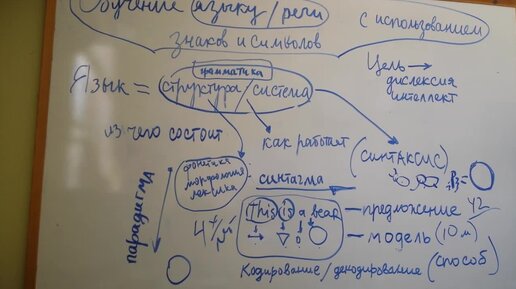 Обучение языку/речи с использованием
знаков и символов
Цель → дислексия
интеллект
грамматика
Язык = структура/система
из чего состоит
как работает
(синтаксис)
фонетика
морфология
лексика
синтагма
парадигма
This is a bear – предложение 42
– модель (10 м)
кодирование/декодирование (способ)